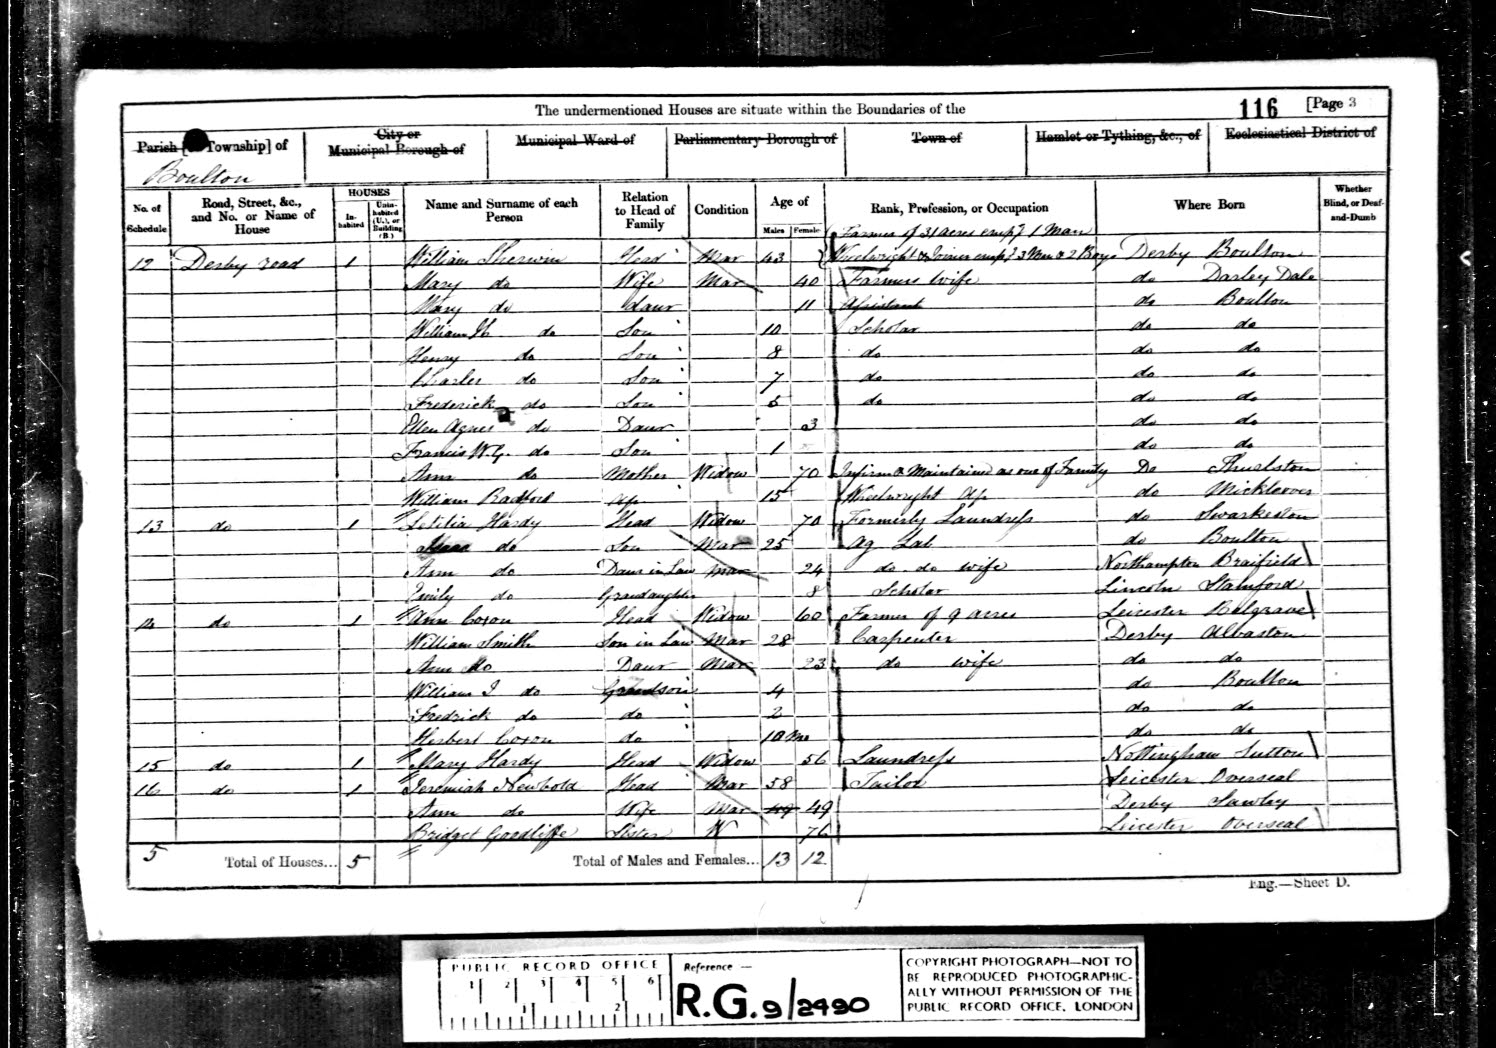 The undermentioned Houses are situate within the Boundaries of the
116 [Page 3
Parish [or Township] of City or Municipal Borough of Municipal Ward of Parliamentary Borough of Town of Hamlet or Tything, &c., of Ecclesiastical District of
Boulton
No. of Schedule Road, Street, &c., and No. or Name of House HOUSES In-habited Unin-habited (U.), or Building (B.) Name and Surname of each Person Relation to Head of Family Condition Age of Males Females Rank, Profession, or Occupation Where Born Whether Blind, or Deaf-and-Dumb
Farmer of 31 acres empg 1 Man
12 Derby road 1 William Sherwin Head Mar 43 Wheelwright & Joiner empg 3 Men & 2 Boys Derby Boulton
Mary do Wife Mar 40 Farmers wife do Darley Dale
Mary do daur 11 Assistant do Boulton
William H do Son 10 Scholar do do
Henry do Son 8 do do do
Charles do Son 7 do do do
Frederick do Son 5 do do do
Ellen Agnes do Daur 3 do do
Francis W.G. do Son 1 do do
Ann do Mother Widow 70 Infirm & Maintained as one of Family Do Thurlston
William Radford Ap 15 Wheelwright Ap do Mickleover
13 do 1 Letitia Hardy Head Widow 70 Formerly Laundress do Swarkeston
do Son Mar 25 Ag Lab do Boulton
Ann do Daur in Law Mar 24 do do wife Northampton Braifield
Emily do Grandaughter 8 Scholar Lincoln Stamford
14 do 1 Ann Coxon Head Widow 60 Farmer of 9 acres Leicester Belgrave
William Smith Son in Law Mar 28 Carpenter Derby Albaston
Ann Do Daur Mar 23 do wife do do
William J do Grandson 4 do Boulton
Fredrick do do 2 do do
Herbert Coxon do 10 Mo do do
15 do 1 Mary Hardy Head Widow 56 Laundress Nottingham Sutton
16 do 1 Jeremiah Newbold Head Mar 58 Tailor Leicester Overseal
Ann do Wife Mar 49 49 Derby Sawley
Bridget Goodliffe Sister W 76 Leicester Overseal
5 Total of Houses... 5 Total of Males and Females... 13 12
Eng.—Sheet D.
PUBLIC RECORD OFFICE
1 2 3 4 5 6
1 2
Reference —
R.G. 9/2490
COPYRIGHT PHOTOGRAPH—NOT TO
BE REPRODUCED PHOTOGRAPHIC-
ALLY WITHOUT PERMISSION OF THE
PUBLIC RECORD OFFICE, LONDON